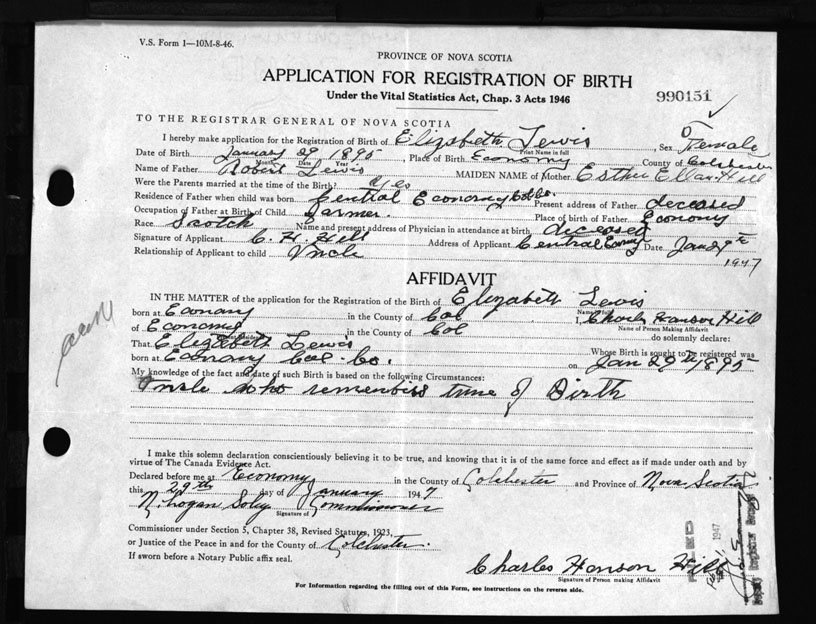 V.S. Form 1—10M-8-46.
PROVINCE OF NOVA SCOTIA
APPLICATION FOR REGISTRATION OF BIRTH
Under the Vital Statistics Act, Chap. 3 Acts 1946
990151
TO THE REGISTRAR GENERAL OF NOVA SCOTIA
I hereby make application for the Registration of Birth of Elizabeth Lewis , Sex Female
Print Name in full
Date of Birth January 29 1895 , Place of Birth Economy County of Colchester
Month Date Year
Name of Father Robert Lewis MAIDEN NAME of Mother Esther Ellan Hill
Were the Parents married at the time of the Birth? Yes
Residence of Father when child was born Central Economy Col Co. Present address of Father deceased
Occupation of Father at Birth of Child farmer. Place of birth of Father Economy
Race Scotch Name and present address of Physician in attendance at birth deceased
Signature of Applicant C. H. Hill Address of Applicant Central Economy Date Jan 29th
1947
Relationship of Applicant to child Uncle
AFFIDAVIT
IN THE MATTER of the application for the Registration of Birth of Elizabeth Lewis
born at Economy in the County of Col I, Charles Hanson Hill
Name of Person Making Affidavit
of Economy in the County of Col do solemnly declare:
That Elizabeth Lewis Whose Birth is sought to be registered was
born at Economy Col. Co. on Jan 29th 1895
My knowledge of the fact and date of such Birth is based on the following Circumstances:
Uncle who remembers time of Birth
I make this solemn declaration conscientiously believing it to be true, and knowing that it is of the same force and effect as if made under oath and by
virtue of The Canada Evidence Act.
Declared before me at Economy in the County of Colchester and Province of Nova Scotia
this 29th day of January 1947
Commissioner
Signature of
Commissioner under Section 5, Chapter 38, Revised Statutes, 1923,
or Justice of the Peace in and for the County of Colchester.
If sworn before a Notary Public affix seal.
Charles Hanson Hill
Signature of Person making Affidavit
For Information regarding the filling out of this Form, see instructions on the reverse side.
1947